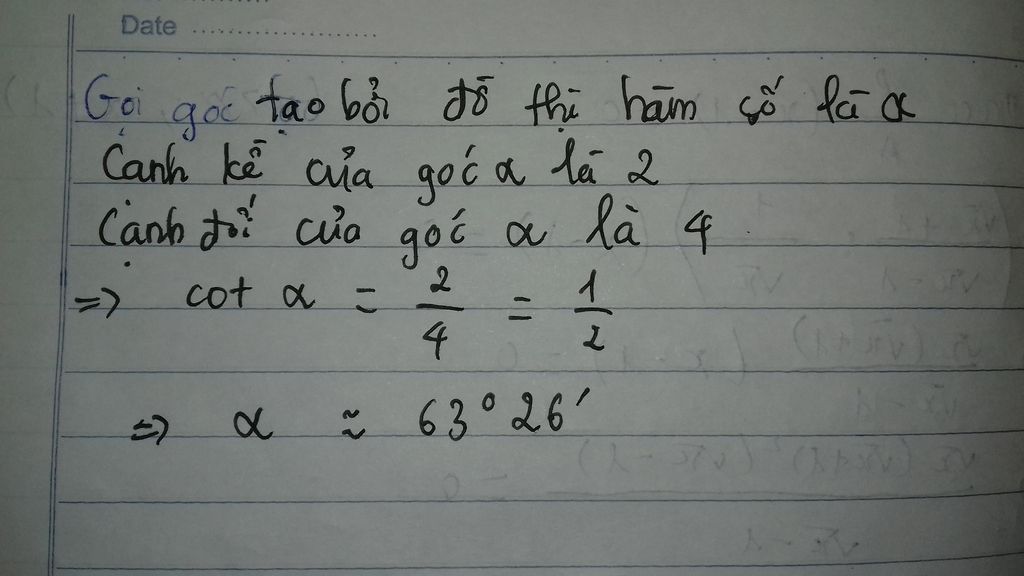 Date ........................
Gọi góc tạo bởi đồ thị hàm số là α
Cạnh kề của góc α là 2
Cạnh đối của góc α là 4
=> cot α = 2/4 = 1/2
=> α ≈ 63° 26'